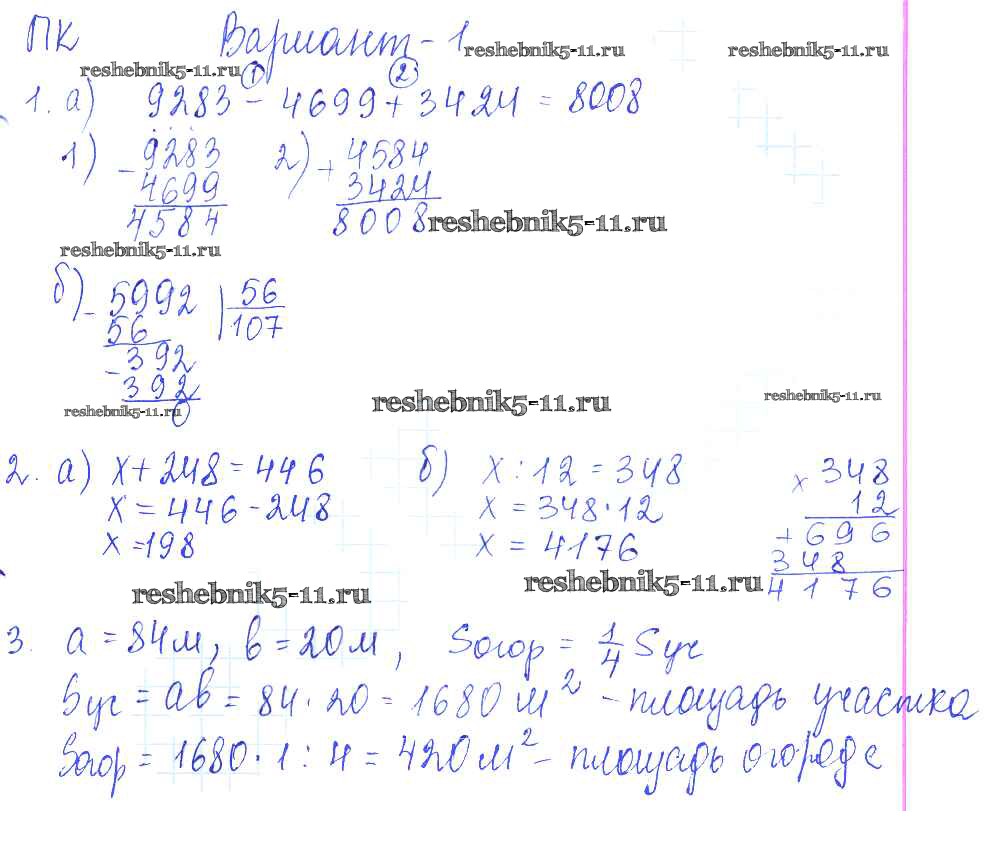 ПК Вариант-1 reshebnik5-11.ru reshebnik5-11.ru
reshebnik5-11.ru 1 2
1. а) 9283 - 4699 + 3424 = 8008
1) - 9283 2) + 4584
4699 3424
4584 8008 reshebnik5-11.ru
reshebnik5-11.ru
б) - 5992 | 56
56 107
- 392
392
reshebnik5-11.ru 0 reshebnik5-11.ru reshebnik5-11.ru
2. а) x + 248 = 446 б) x : 12 = 348 x 348
x = 446 - 248 x = 348 · 12 12
x = 198 x = 4176 + 696
348
reshebnik5-11.ru reshebnik5-11.ru 4176
3. a = 84 м, b = 20 м, Sогор = 1/4 Sуч
Sуч = ab = 84 · 20 = 1680 м² - площадь участка
Sогор = 1680 · 1 : 4 = 420 м² - площадь огорода